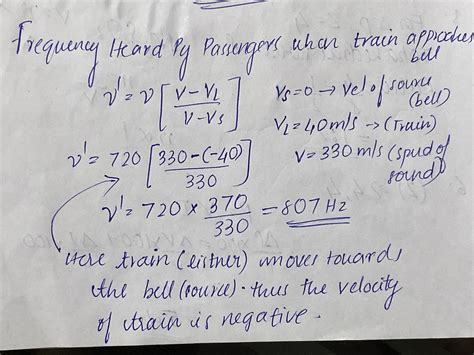 Frequency Heard By Passengers when train approaches
bell
ν' = ν [ V - V_L / V - V_S ]
V_S = 0 → Vel of source
(bell)
V_L = 40 m/s → (Train)
V = 330 m/s (speed of
sound)
ν' = 720 [ 330 - (-40) / 330 ]
ν' = 720 × 370 / 330 = 807 Hz
Here train (listner) moves towards
the bell (source). thus the velocity
of train is negative.